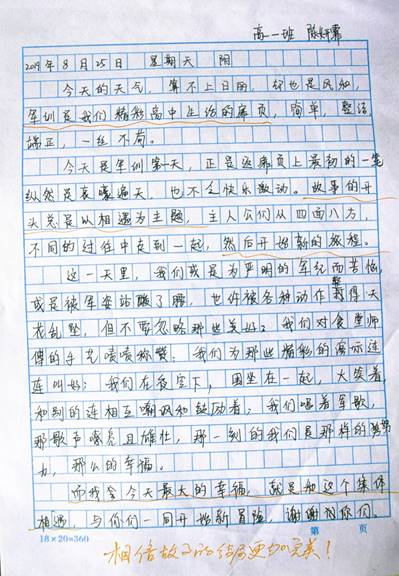 高一班 陈
2019年8月25日 星期天 阴
今天的天气,算不上日丽,却也是风和,
军训是我们精彩高中生活的扉页,简单,整洁,
端正,一丝不苟。
今天是军训第一天,正是这扉页上最初的一笔
纵然是哀嚎遍天,也不乏快乐激动。故事的开
头总是以相遇为主题,主人公们从四面八方,
不同的过往中走到一起,然后开始新的旅程。
这一天里,我们或是为严明的军纪而苦恼,
或是被军姿站酸了腰,也许被各种动作整得天
花乱坠,但不要忽略那些美好:我们对食堂师
傅的手艺啧啧称赞;我们为那些精彩的展示连
连叫好;我们在夜空下,围坐在一起,大笑着,
和别的连相互嘲讽和鼓励着;我们唱着军歌,
那歌声嘹亮且雄壮,那一刻的我们是那样的努
力,那么的幸福。
而我金今天最大的幸福,就是和这个集体
相遇,与你们一同开始新冒险,谢谢你们。
18×20=360 第 页
相信故事的结局更加完美!